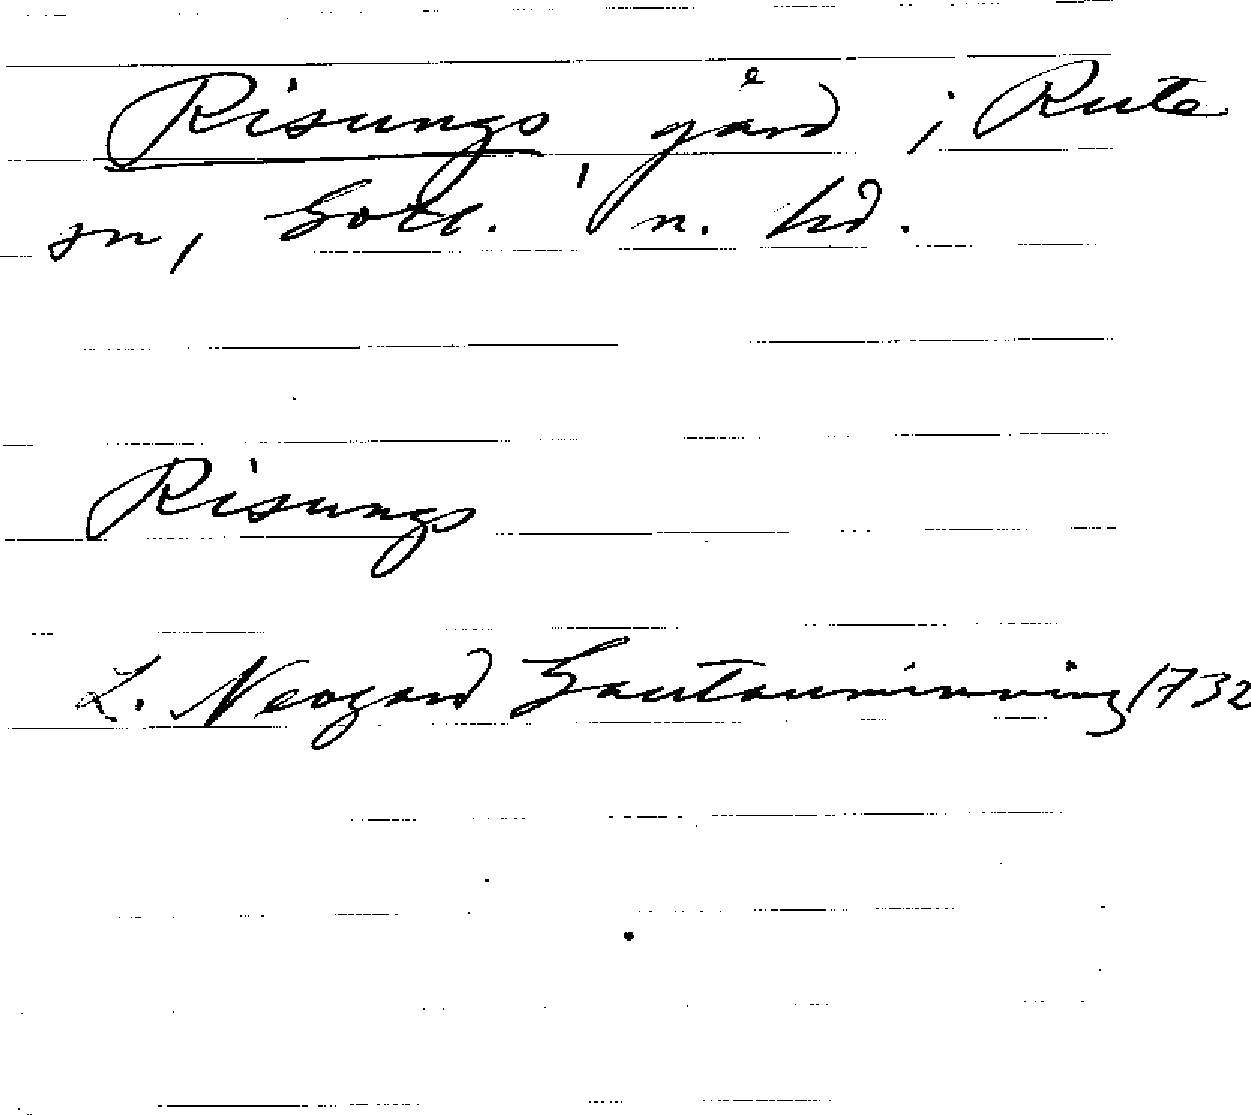 Risungs, gård, i Rute
sn, Gotl. n. hd.
Risungs
L. Neogard Gautauminning 1732